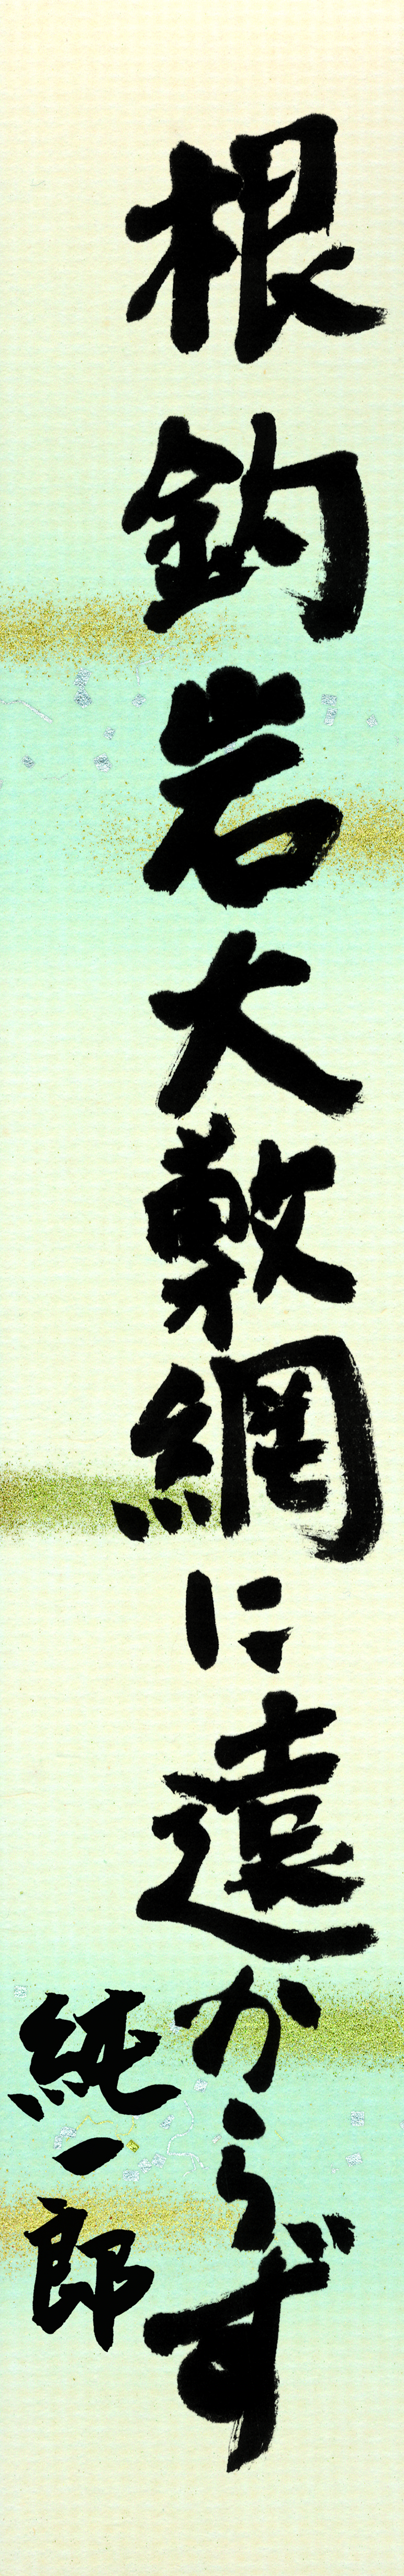 根釣岩大敷網に遠からず
純一郎